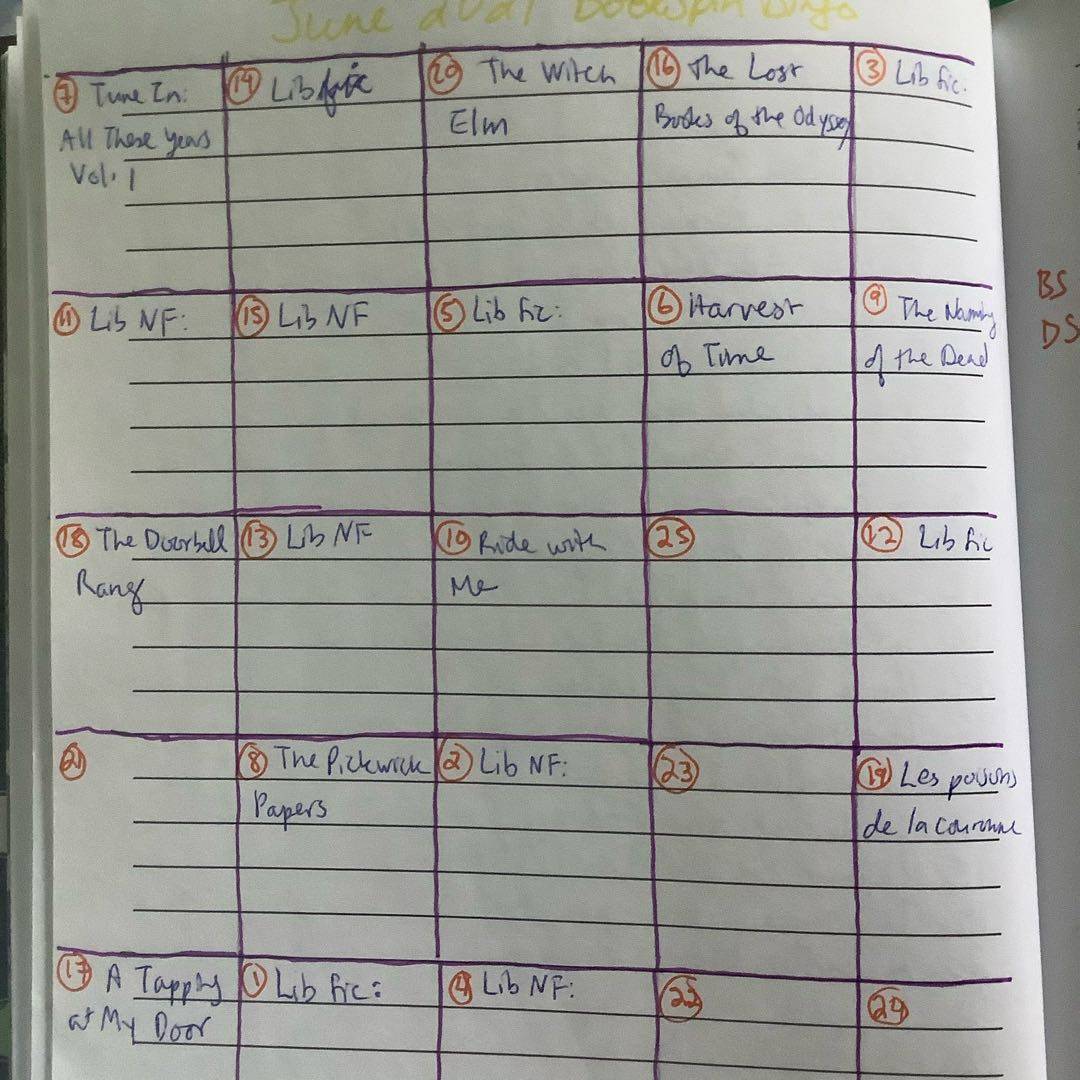 June 2021 Bookspin Bingo
7 Tune In:
All These Years
Vol. 1
14 Lib fic
20 The Witch
Elm
16 The Lost
Books of the Odyssey
3 Lib fic.
11 Lib NF:
15 Lib NF
5 Lib fic:
6 Harvest
of Time
9 The Naming
of the Dead
BS
DS
18 The Doorbell
Rang
13 Lib NF
10 Ride with
Me
25
12 Lib fic
21
8 The Pickwick
Papers
2 Lib NF:
23
19 Les poisons
de la couronne
17 A Tapping
at My Door
1 Lib fic:
4 Lib NF:
24